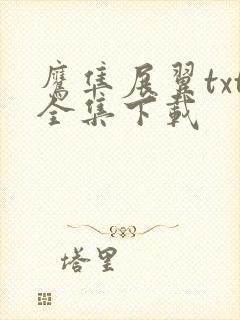 鹰隼展翼txt
全集下载
塔里